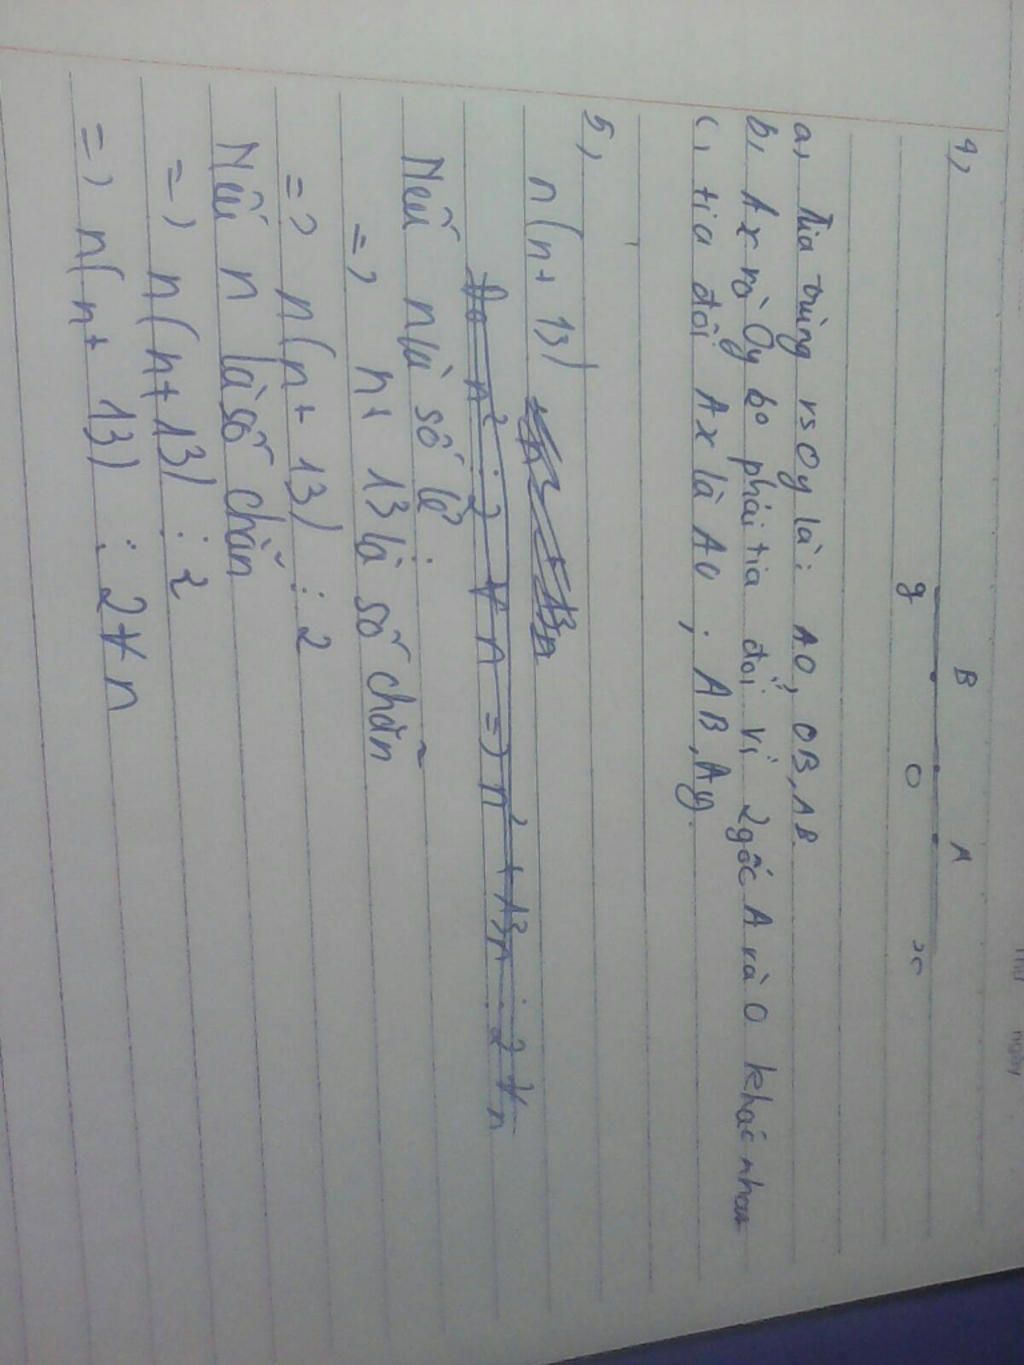 4,
B A
y O x
a, Tia trùng vs Oy là: AO, OB, AB.
b, Ax và Oy ko phải tia đối vì 2 gốc A và O khác nhau
c, tia đối Ax là AO ; AB, Ay.
5,
n(n+13)
Do n² ⋮ 2 ∀ n => n² + 13n ⋮ 2 ∀ n
Nếu n là số lẻ
=> n + 13 là số chẵn
=> n(n+13) ⋮ 2
Nếu n là số chẵn
=> n(n+13) ⋮ 2
=> n(n+13) ⋮ 2 ∀ n